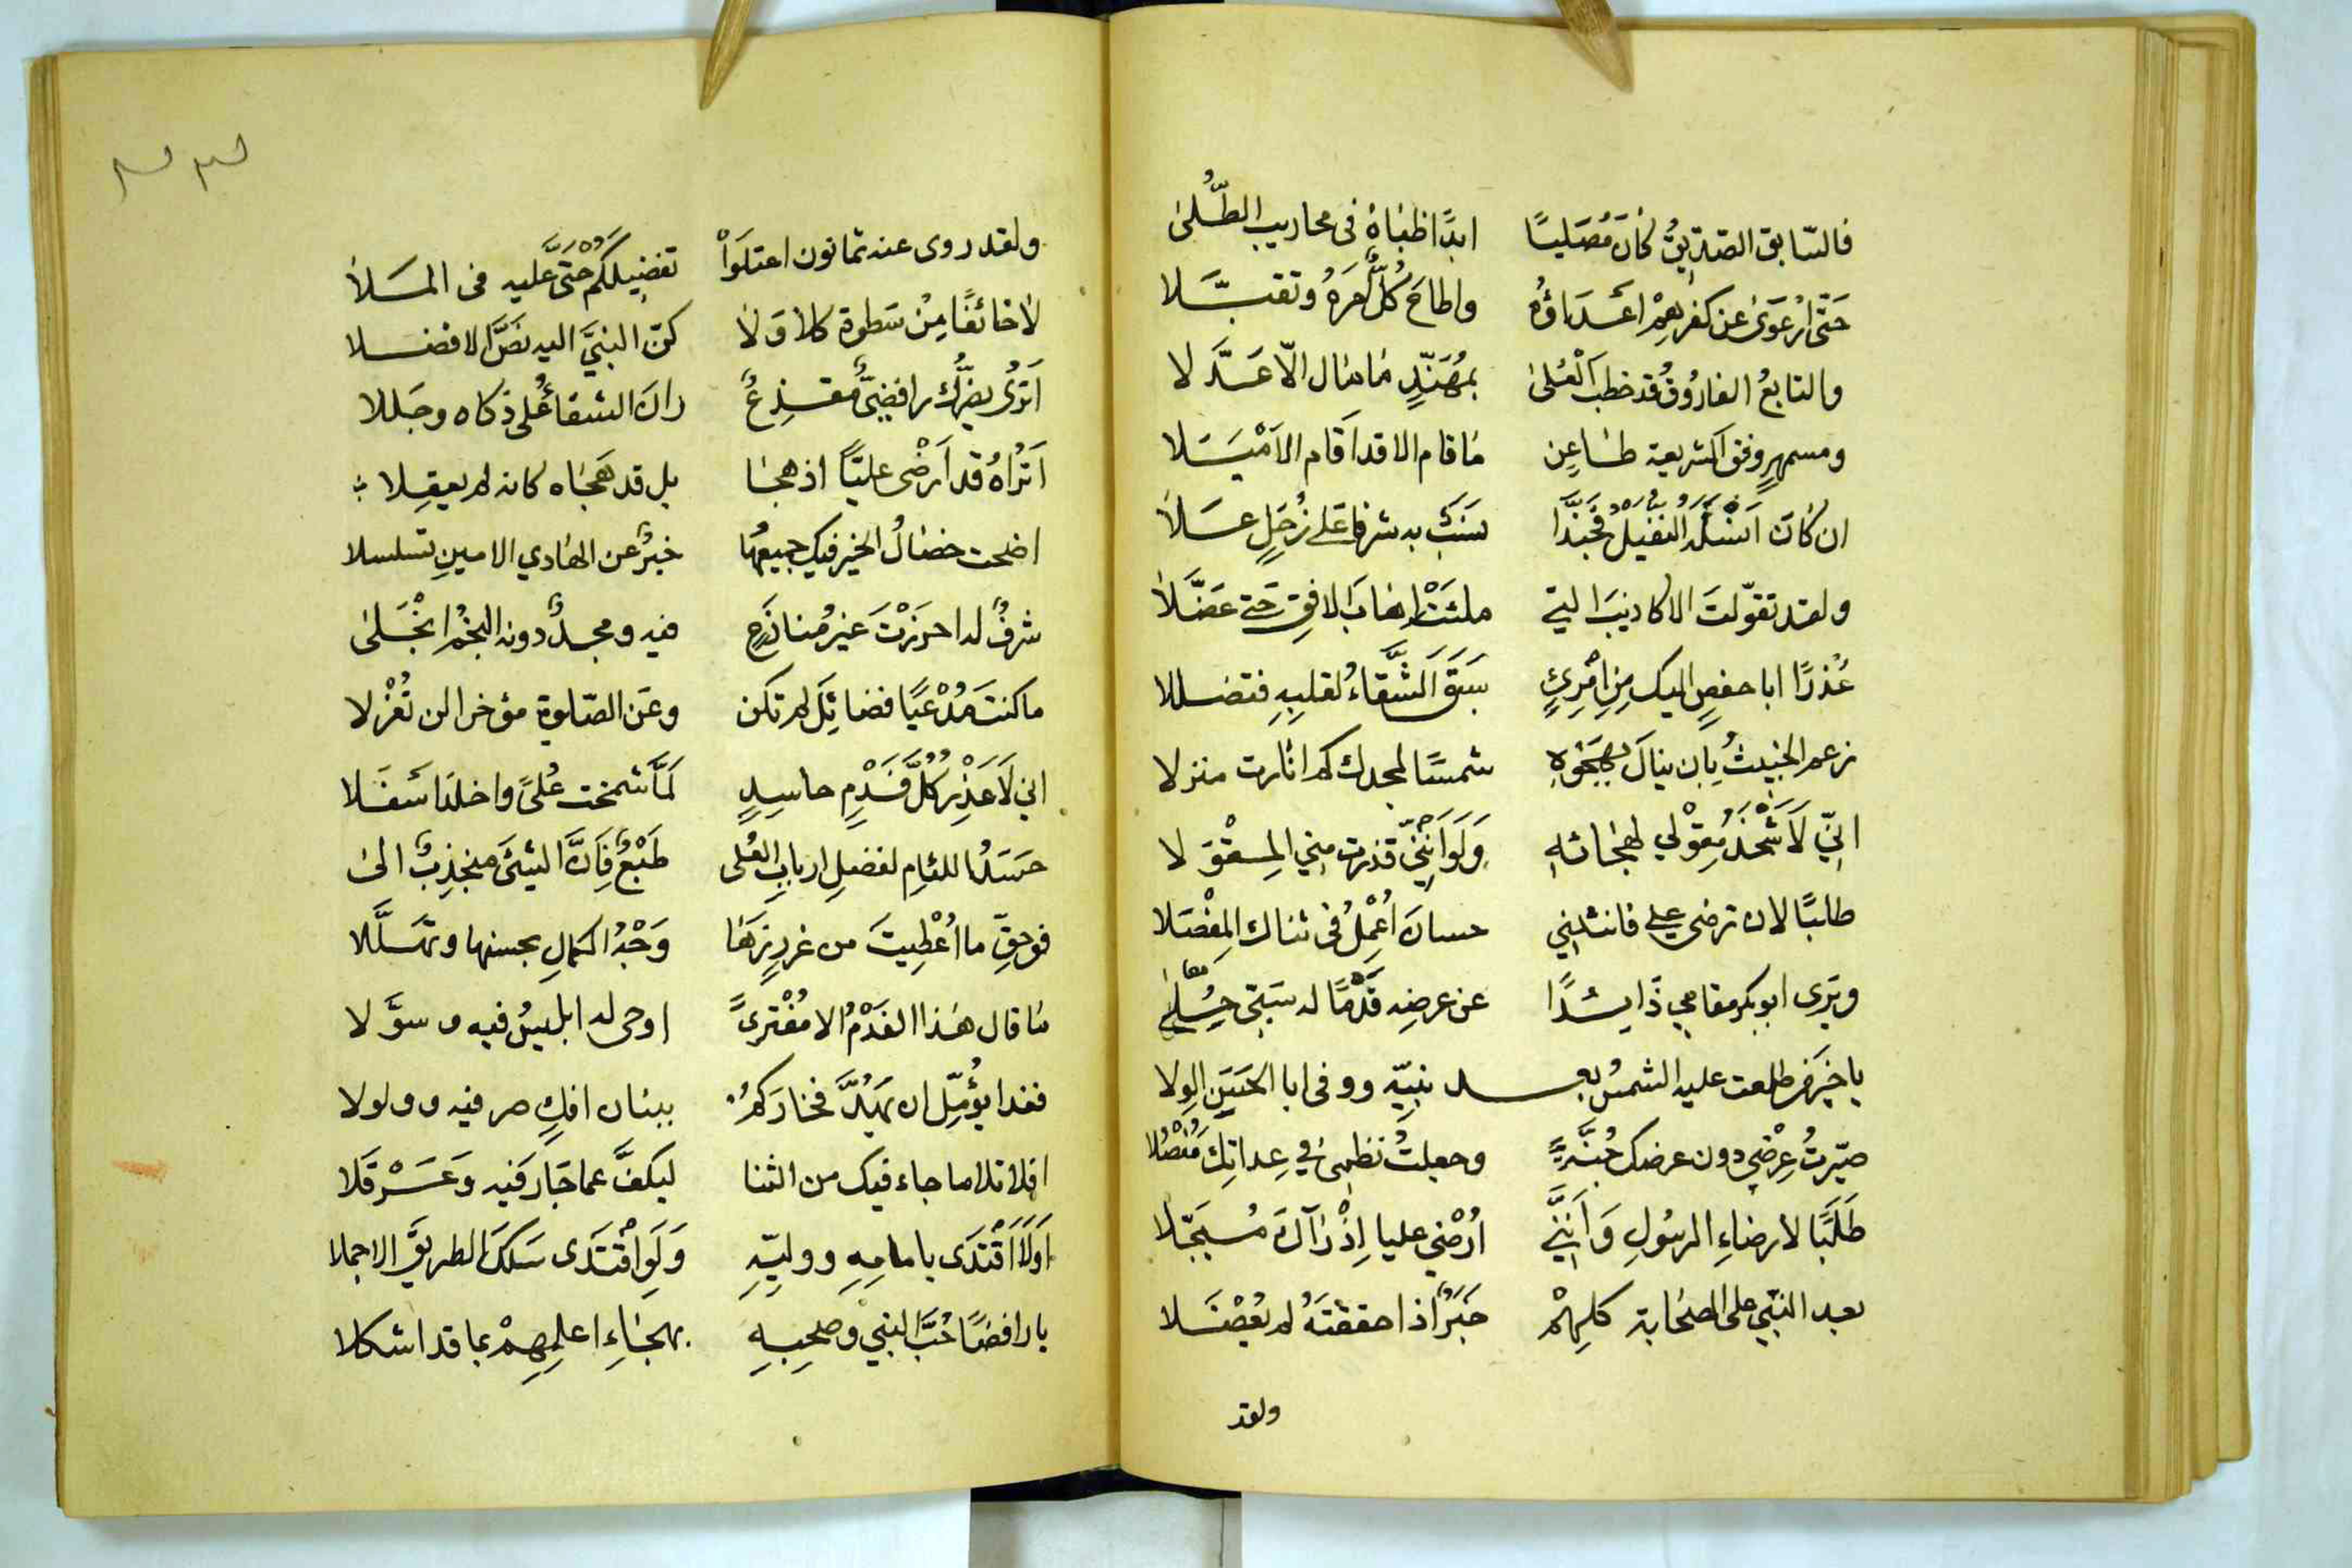 فالسّابق الصّدّيقُ كانَ مُصَليًا ابدًا ظباهُ فى محاريب الطُّلىٰ
حَتّى ارْعَوَىٰ عن كفرهِمْ اعَداؤهُ واطاحَ كلٌّ امرَهُ وتقبَّلا
والتابعُ الفارُوقُ قد خطب العُلىٰ بمُهَنّدٍ مَا مال الّا عَدَّلا
ومسمهرٍ وفق الشريعة طاعِن مَا قام الا قد اَقام الاَمْيَلا
ان كانَ اَسْلَهُ النفيلْ فحَبّذا نسَبٌ به شرفا على زُحَلٍ عَلا
ولقد تقوّلتَ الاكاذيبَ التي ملئَتْ رحابَ الافقِ حتى عضّلا
عُذرًا ابا حفصٍ اليك مِنِ امْرِئٍ سَبَقَ الشَّقاءُ لقلبِهِ فتضللا
زعم الخبيثُ بان ينالَ بهَجْوِهِ شمسًا لمجدك كم انارت منزلا
انّي لاَشْحَذُ مِقْوَلي لهجائهِ وَلَوَ اَنّني قذرت مني المِقْوَلا
طالبًا لان ترضى علي فانثنِني حسانَ اُعْمِلُ فى ثناك المِفْصَلا
ويَرى ابو بكر مقامي ذَائدًا عن عرضِه قَدْمًا له سَبّي حلى
يا خيرَ من طلعت عليه الشمسُ بعد نبيّه ووفى ابا الحسَنِ الوِلا
صيّرتُ عِرْضي دون عرضك جُنّةً وجعلتُ نظمىٰ في عِداتِكَ مُنْصُلا
طَلَبًا لارضاءِ الرسُولِ وَاَنّني اُرْضي عليا اِذْ رَآكَ مُبَجّلا
بعد النبّي على الصحَابة كلهِمْ خَبَرٌ اذا حققتَهُ لم يُعْضَلا
ولقد
ولقد روى عنه ثمانون اعتلَواْ تفضيلَكُمْ حَتّى عَليه فى المَلأ
لا خائفًا مِنْ سَطوة كلا وَلا كنّ النبيَّ اليه نَصَّ الافضلا
اَتَرىٰ يضرُّك رافضِيٌّ مُقذِعٌ رانَ الشقاءُ على ذكاه وجَللا
اَتُراهُ قد اَرْضى عليّاً اذ هجا بل قد هَجاه كانه لم يعقِلا
اضحت خصالُ الخير فيك جميعُها خبرٌ عن الهادي الامينِ تسلسلا
شرفٌ له احرزْتَ غير مُنازَعٍ فيه ومجدٌ دونه النجمُ انجَلىٰ
ما كنتَ مُدْعيًا فضائِلَ لم تكن وعَن الصّلوة مؤخرا لن تُعْزلا
اني لاَعَذِرُ كُلَّ فَدْمٍ حاسِدٍ لَمَّا شمخت عُلىً واخلدَ اسَفلا
حَسَدُ اللئامِ لفضلِ اربابِ العُلى طَبْعٌ فَاِنَّ الشيئَ منجذِبٌ الىٰ
فوحقِّ ما اُعْطِيتَ من غررٍ زَهَا وَجْهُ الكمالِ بحسنها وتهَلَّلا
مَا قال هٰذا الفَدْمُ الا مُفْتَرىً اوحى له ابليسُ فيه وسوَّلا
فغدا يؤَمِّل ان يَهُدَّ فخارَكمْ ببنان افكٍ صر فيه وولولا
افلا تلا ما جاء فيك من الثنا ليكفَّ عما جَارَ فيه وَعَرْقَلا
اَوَلاَ اقْتدَى بامامِهِ ووليّهِ وَلَوِ اقْتَدى سَلكَ الطريقَ الاجملا
يا رافضًا حُبَّ النبي وصحبِهِ بهجاءِ اعلمِهِمْ بما قد اشكلا